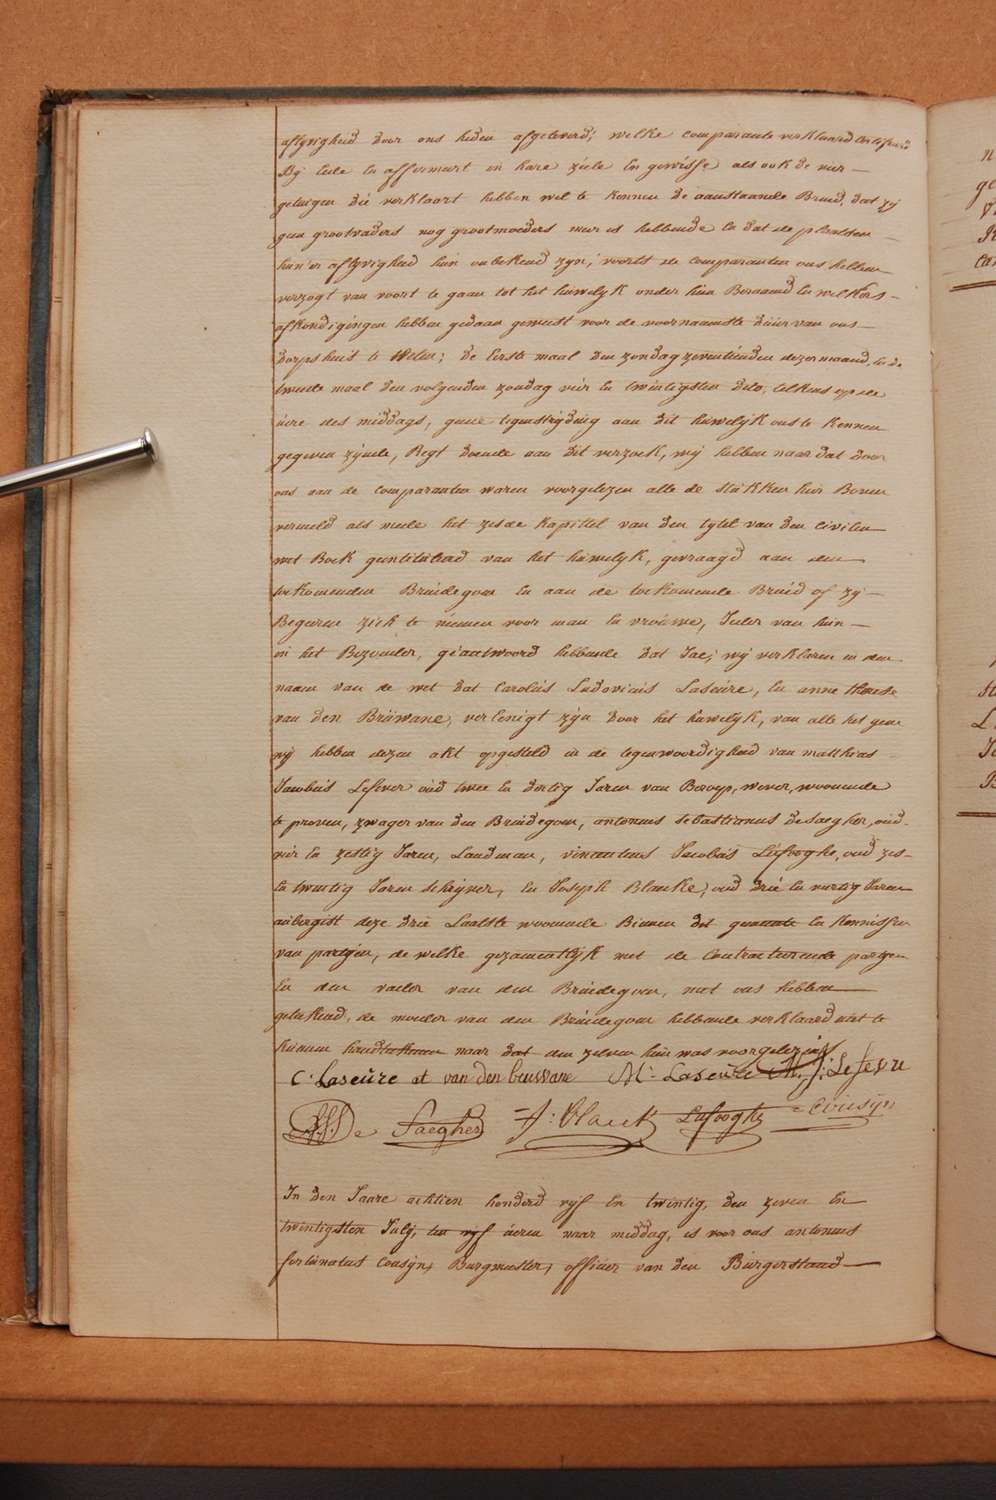 aflyvigheid door ons heden afgeleverd; welke comparante verklaard Certifieerd
By Eede En affirmeert in hare ziele En gewisse als ook de vier
getuigen die verklaart hebben wel te kennen de aanstaande Bruid, dat zy
geen grootvaders nog grootmoeders meer is hebbende En dat de plaatsen
hun'er aflyvigheid hun onbekend zyn; voorts de comparanten ons hebben
verzogt van voort te gaan tot het huwelyk onder hun Beraamd En welkers
afkondigingen hebben gedaan geweest voor de voornaamste duur van ons
dorpshuis te Welen; de Eerste maal den zondag zeventienden dezer maand, En de
tweede maal den volgenden zondag vier En twintigsten dito, telkens op de
uere des middags, geene tegenstryding aan dit huwelyk ons te kennen
gegeven zynde, Regt doende aan dit verzoek, wy hebben naar dat door
ons aan de comparanten waren voorgelezen alle de stukken hier Boven
vermeld als mede het zesde kapittel van den tytel van den Civilen
wet Boek geintituleerd van het huwelyk, gevraagd aan den
toekomenden Bruidegom En aan de toekomende Bruid of zy
Begeeren zich te niemen voor man En vrouwe, Ieder van hun
in het Bezonder, geantwoord hebbende dat Jae; wy verklaren in den
naam van de wet dat Carolus Ludovicus Laseure, En anne therese
van den Bruwane, vereenigt zyn door het huwelyk, van alle het gene
wy hebben dezen akt opgesteld in de tegenwoordigheid van matthias
Jacobus Lefever oud twee En dertig Jaren van Beroep, wever, woonende
te proven, zwager van den Bruidegom, antonius sebastianus de saegher, oud
vier En zestig Jaren, Landman, vincentius Jacobus Lefooghe, oud zes
En twintig Jaren schryver, En Joseph Blancke, oud drie En veertig Jaren
aubergist deze drie Laatste woonende Binnen dit gemeente En Kennissen
van partyen, de welke gezamentlyk met de Contracteerende partyen
En den vader van den Bruidegom, met ons hebben
geteekend, de moeder van den Bruidegom hebbende verklaard niet te
kunnen handteekenen naar dat den zelven hun was voorgelezen
C: Laseüre at van den bruwane M: Laseüre M, J: Lefevre
A.S. De Saegher J: Blanck Lefooghe Cousyn
In den Jaare achtien honderd vyf En twintig, den zeven En
twintigsten July, ten vyf ueren naar middag, is voor ons antonius
fortunatus Cousyn, Burgmeester, officier van den Burgerstand